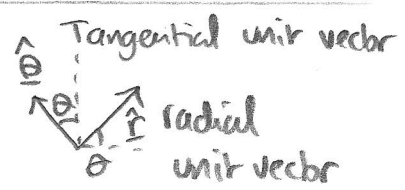 Tangential unit vector
θ̂
θ
r̂ radial
θ
unit vector